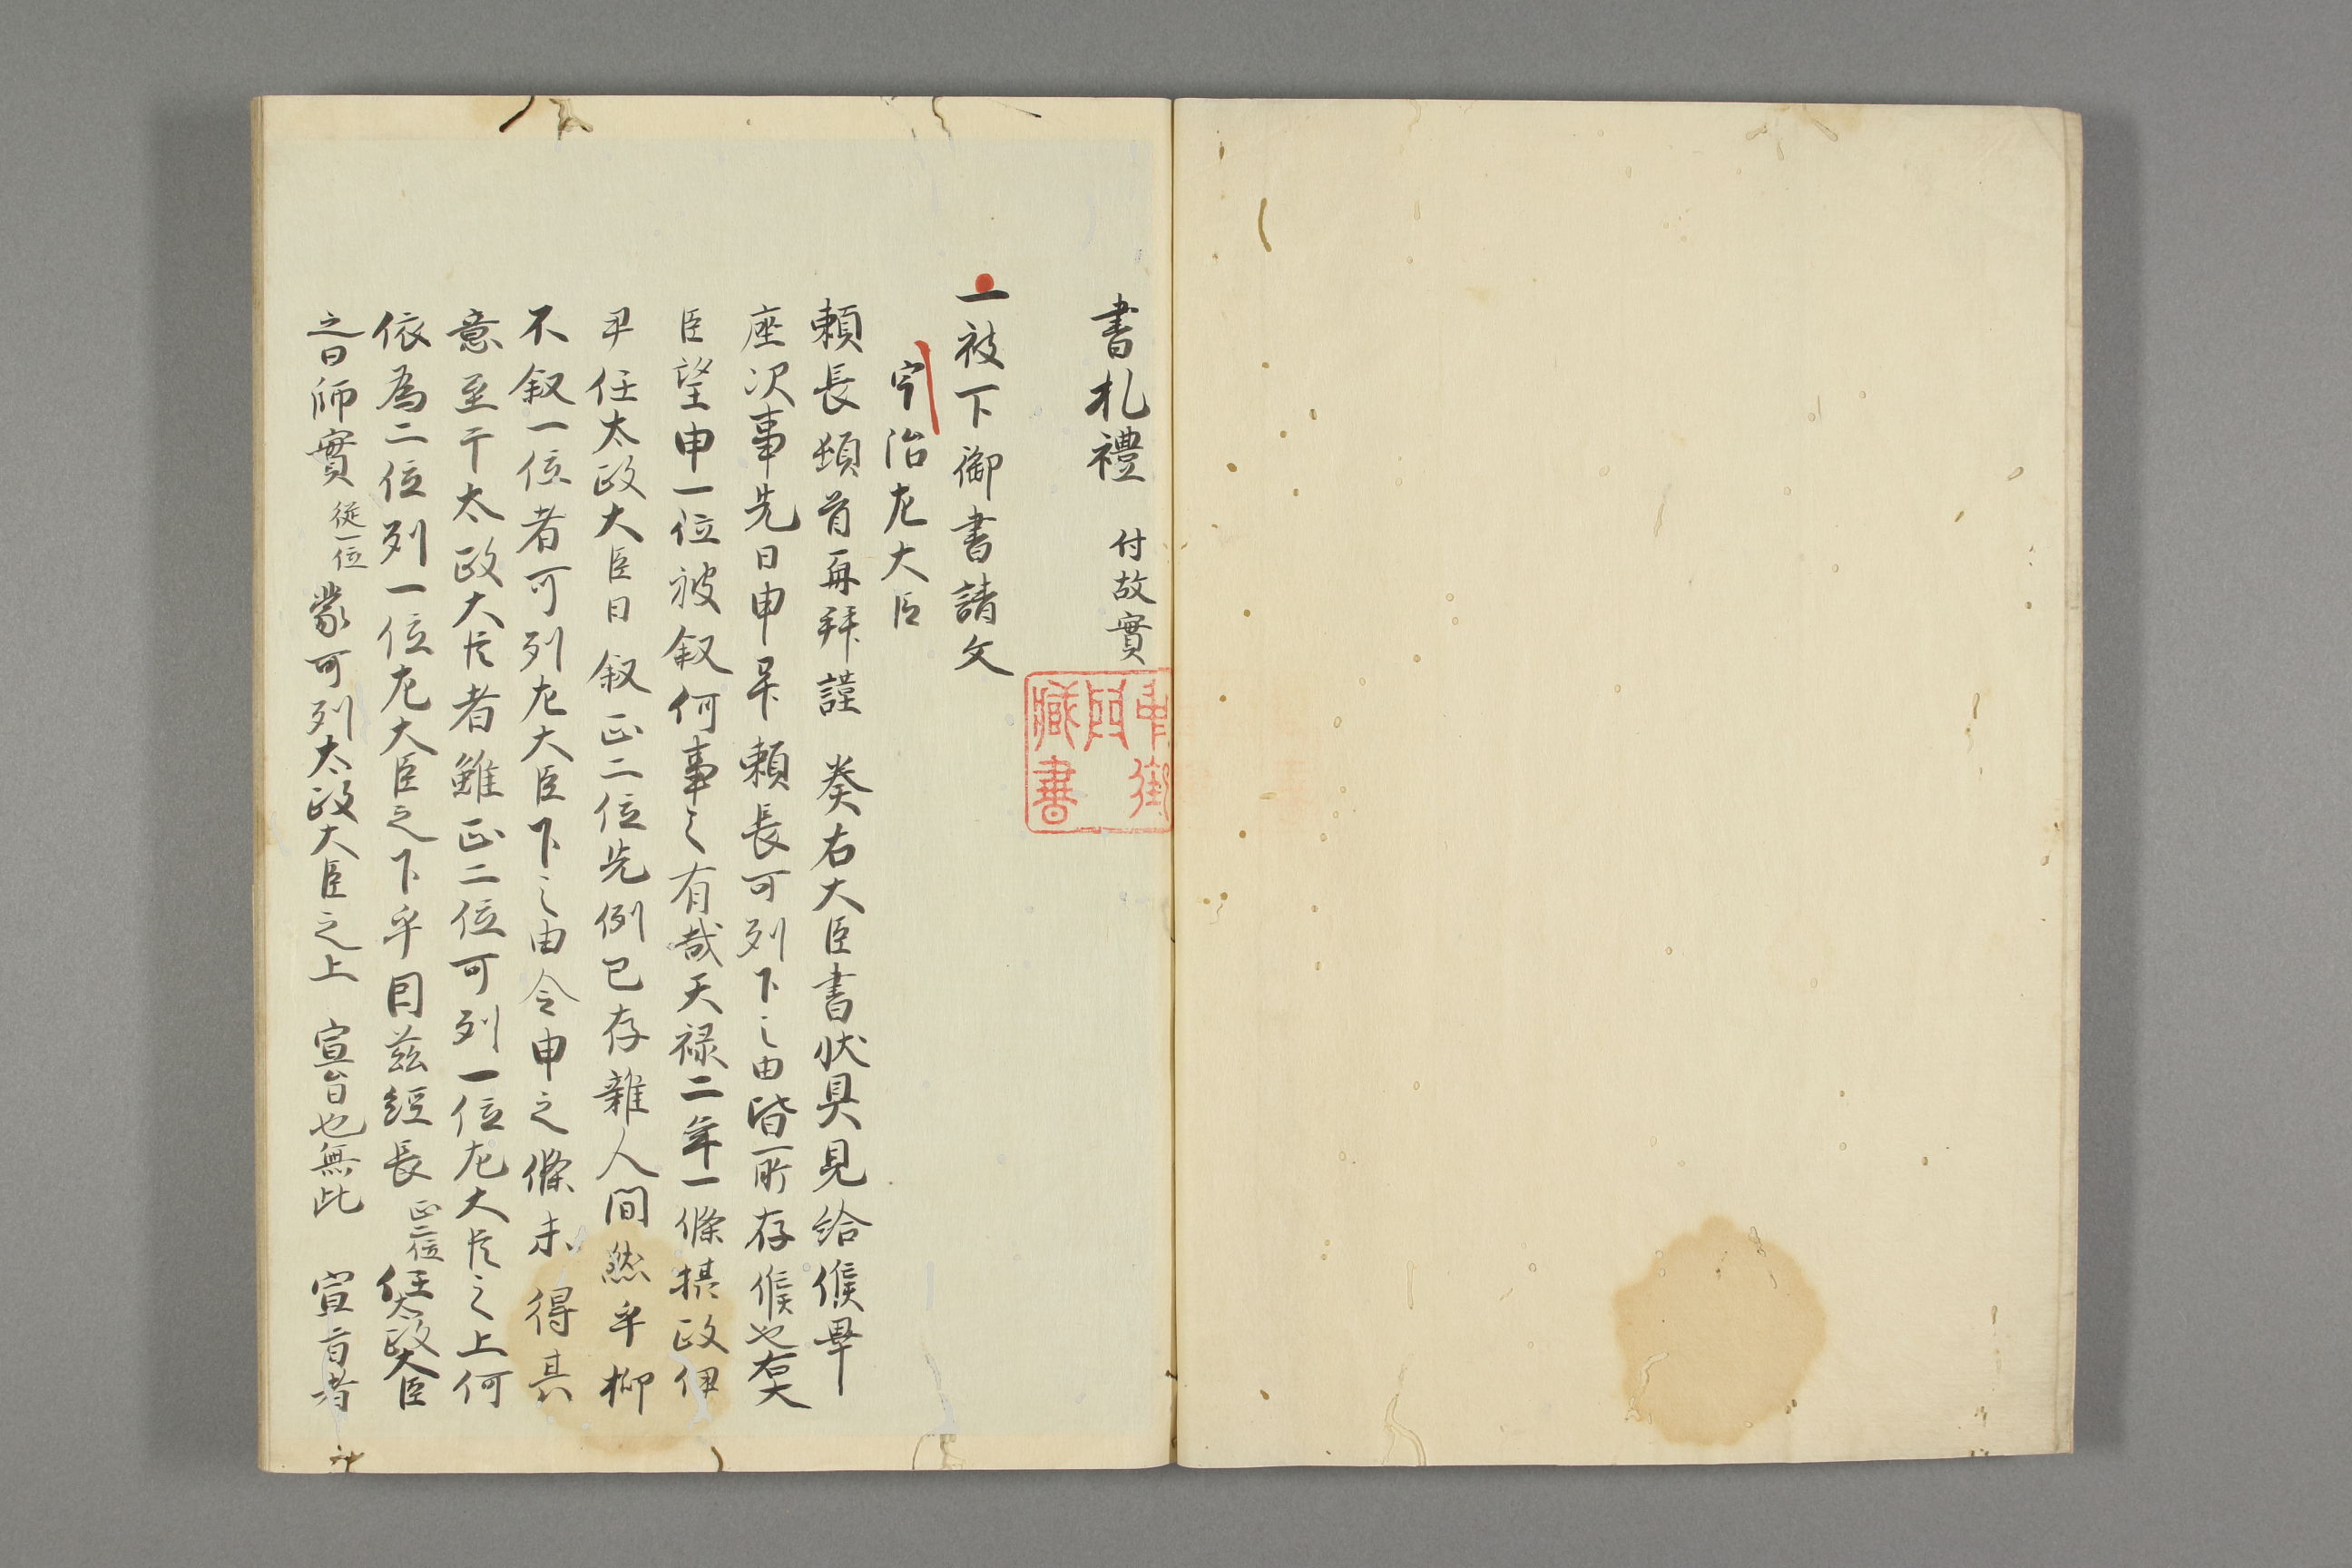 書札禮 付故實
一被下御書請文
宇治左大臣
頼長頓首再拜謹 奏右大臣書状具見給候畢
座次事先日申畢 頼長可列下之由皆所存候也右大
臣望申一位被叙何事之有哉天禄二年一條摂政伊
尹任太政大臣日叙正二位先例已存雜人間然乎抑
不叙一位者可列左大臣下之由令申之條未得其
意至于太政大臣者雖正二位可列一位左大臣之上何
依為二位列一位左大臣之下乎因茲經長正二位任太政大臣
之日師實從一位蒙可列太政大臣之上 宣旨也無此 宣旨者
藏書